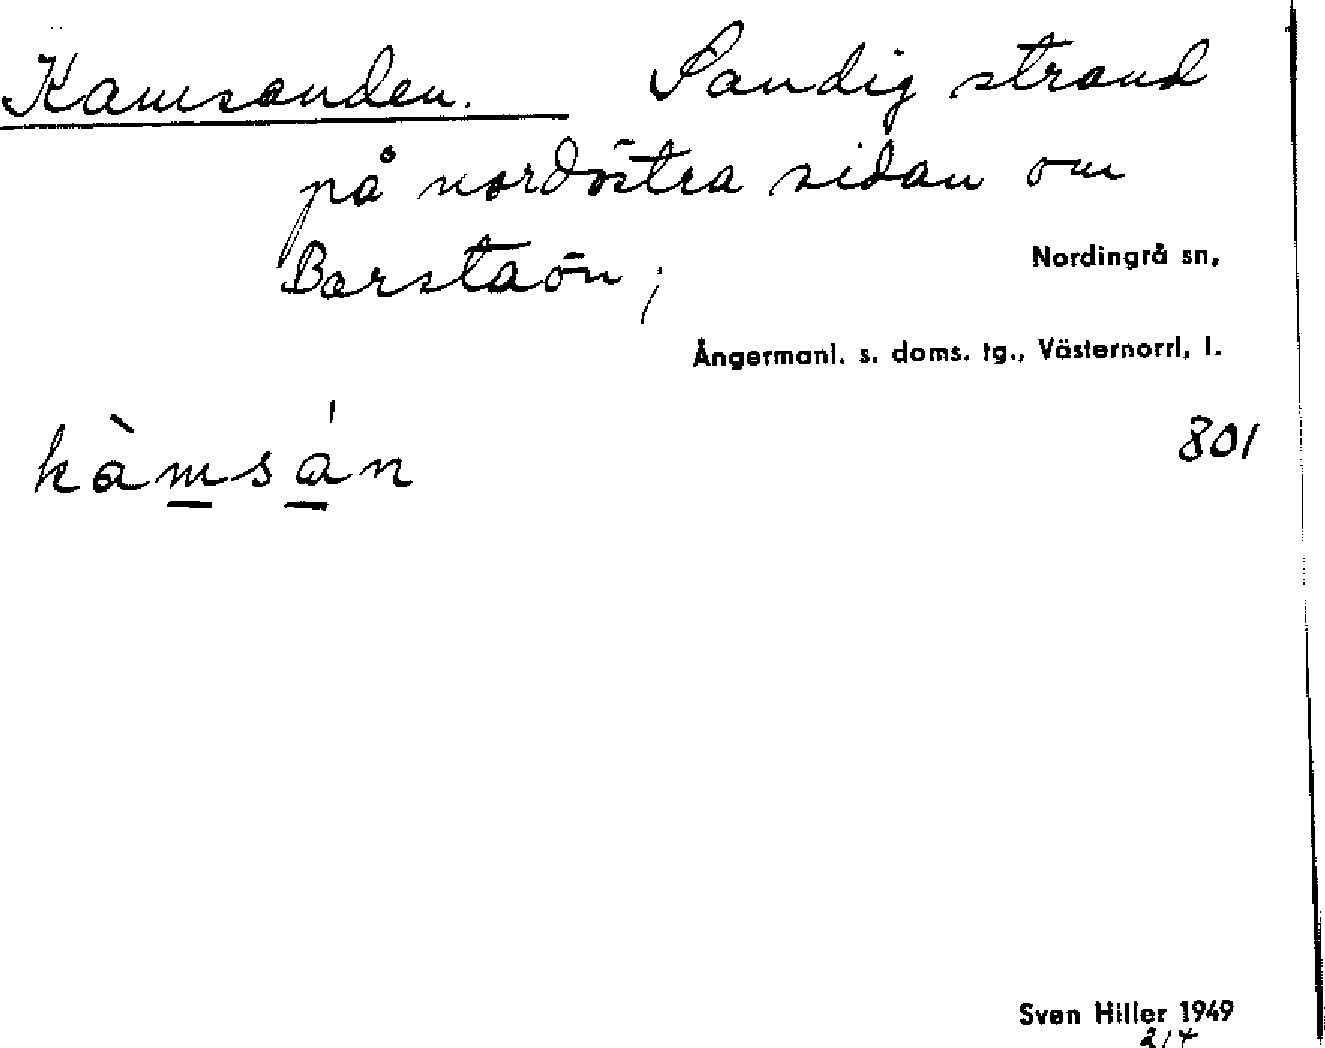 Kamsanden. Sandig strand
på nordöstra sidan om
Barstaön;
Nordingrå sn,
Ångermanl. s. doms. tg., Västernorrl. l.
801
kàmsán
Sven Hiller 1949
2/4